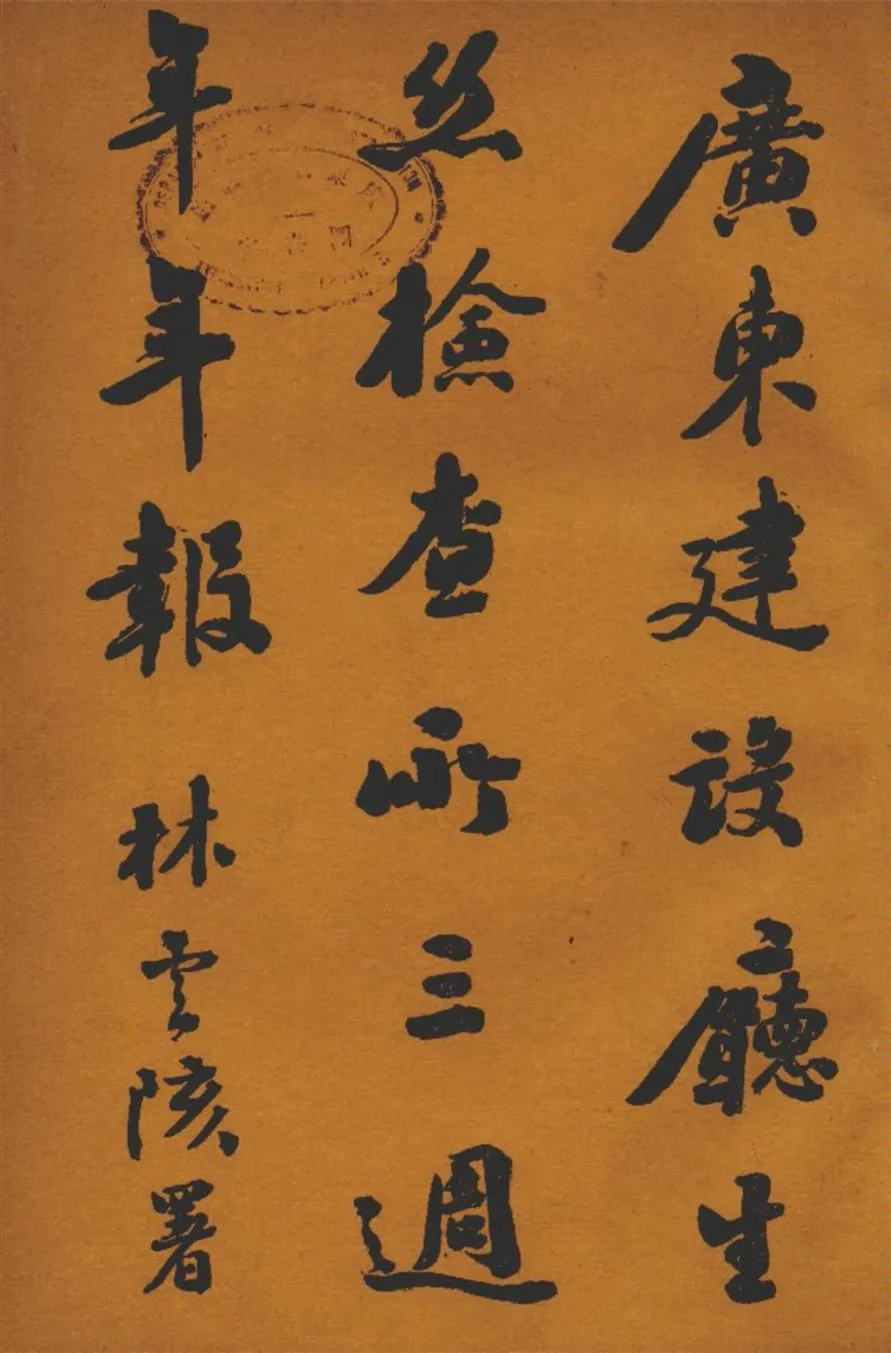 廣東建設廳生
丝檢查所三週
年年報 林云陔署